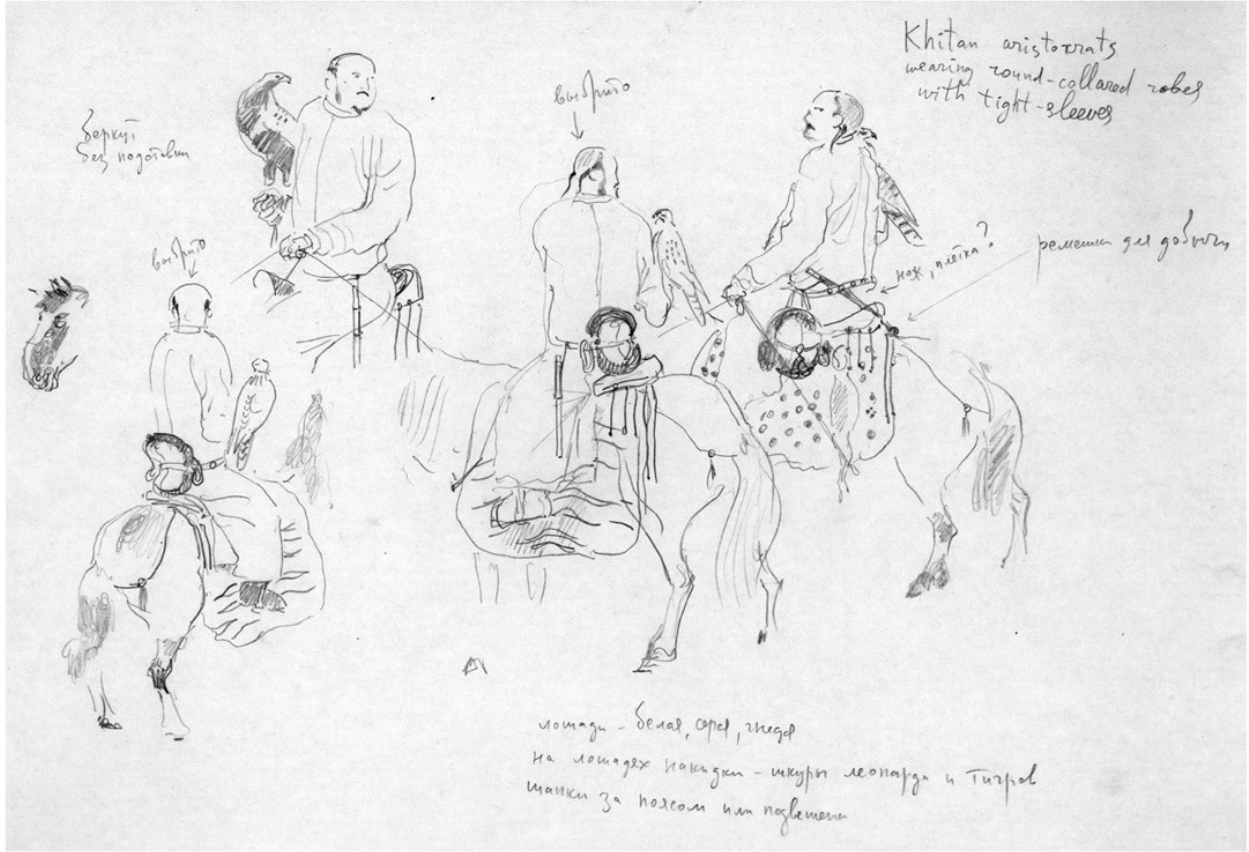 Khitan aristokrats
wearing round-collared robes
with tight-sleeves
выбрито
беркут
без подставки
выбрито
нож, плётка?
ремешки для добычи
лошади - белая, серая, гнедая
на лошадях накидки - шкуры леопарда и тигров
шапки за поясом или подвешены